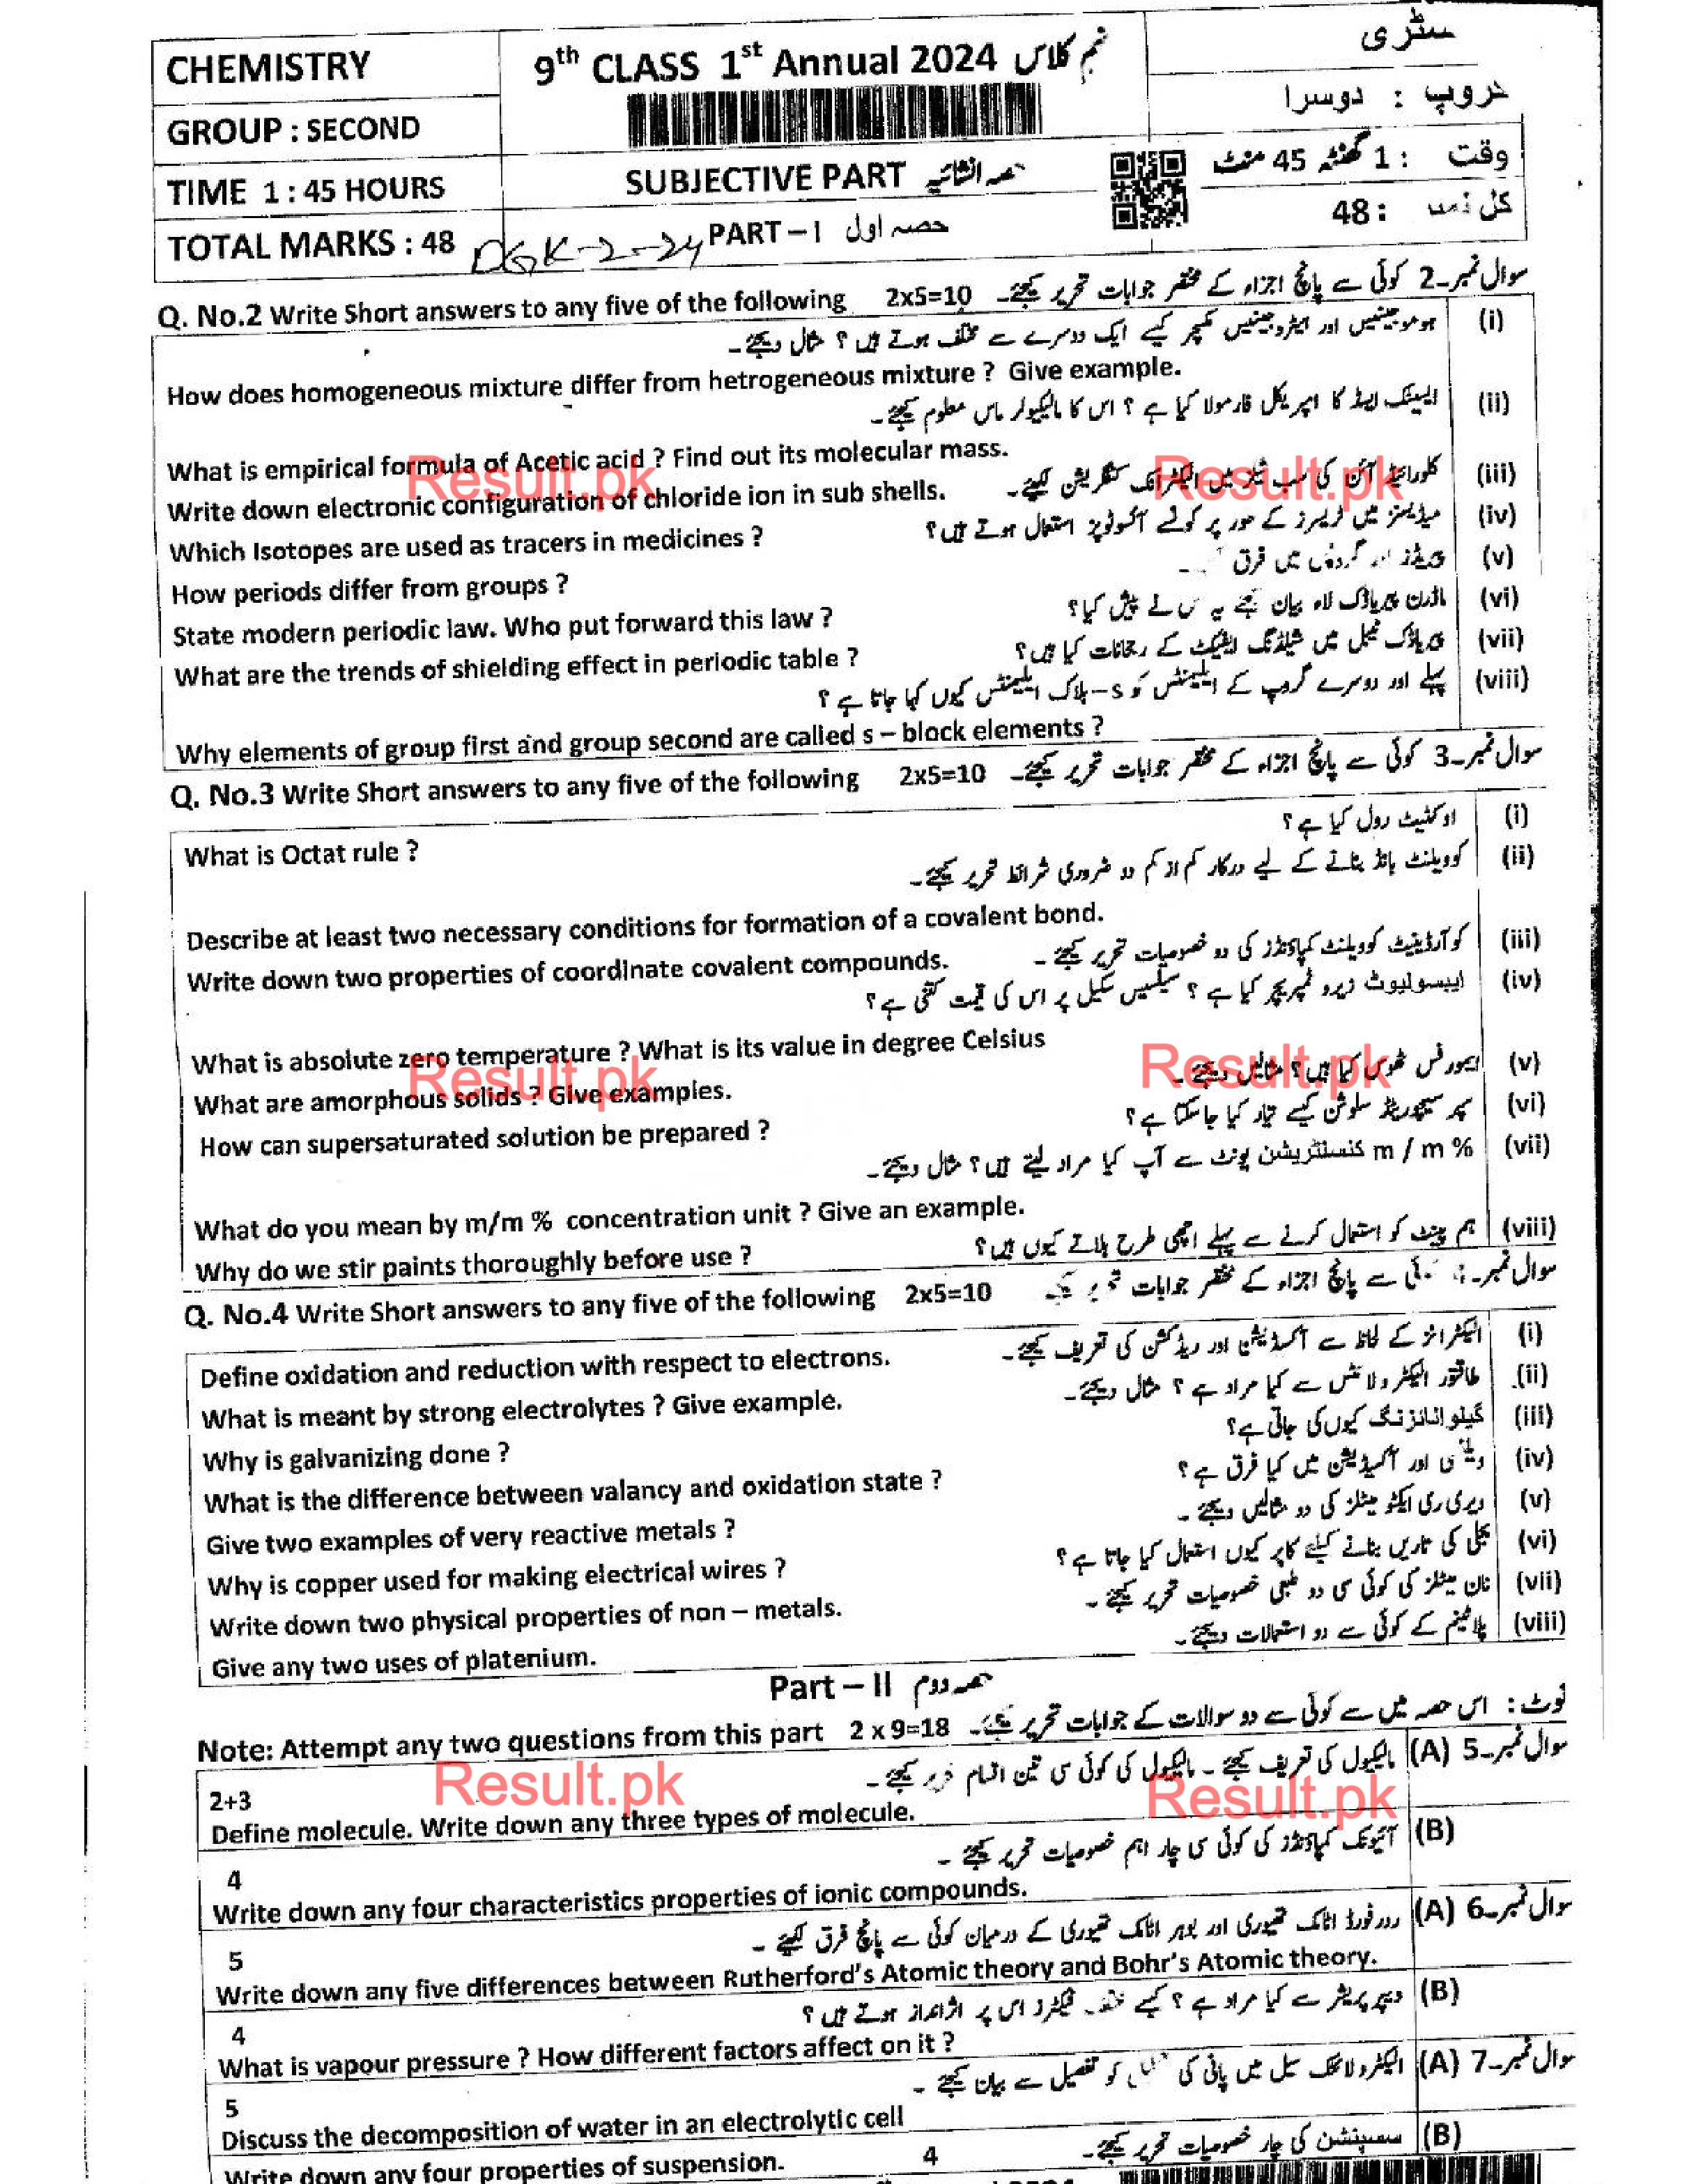 CHEMISTRY
9th CLASS 1st Annual 2024 نہم کلاس
GROUP : SECOND
گروپ : دوسرا
TIME 1 : 45 HOURS
SUBJECTIVE PART حصہ انشائیہ
وقت : 1 گھنٹہ 45 منٹ
TOTAL MARKS : 48
DGK-2-24
PART – I حصہ اول
کل نمبر : 48
Q. No.2 Write Short answers to any five of the following 2x5=10 سوال نمبر۔2 کوئی سے پانچ اجزاء کے مختصر جوابات تحریر کیجئے۔
(i) ہوموجینیس اور ہیٹروجینیس مکسچر کیسے ایک دوسرے سے مختلف ہوتے ہیں ؟ مثال دیجئے۔
How does homogeneous mixture differ from hetrogeneous mixture ? Give example.
(ii) ایسیٹک ایسڈ کا امپیریکل فارمولا کیا ہے ؟ اس کا مالیکیولر ماس معلوم کیجئے۔
What is empirical formula of Acetic acid ? Find out its molecular mass.
Write down electronic configuration of chloride ion in sub shells. (iii) کلورائیڈ آئن کی سب شیلز میں الیکٹرانک کنفگریشن لکھیے۔
Which Isotopes are used as tracers in medicines ? (iv) میڈیسنز میں ٹریسرز کے طور پر کونسے آئسوٹوپز استعمال ہوتے ہیں؟
How periods differ from groups ? (v) پیریڈز اور گروپوں میں فرق
State modern periodic law. Who put forward this law ? (vi) ماڈرن پیریاڈک لاء بیان کیجئے یہ کس نے پیش کیا؟
What are the trends of shielding effect in periodic table ? (vii) پیریاڈک ٹیبل میں شیلڈنگ ایفیکٹ کے رجحانات کیا ہیں؟
(viii) پہلے اور دوسرے گروپ کے ایلیمنٹس کو s–بلاک ایلیمنٹس کیوں کہا جاتا ہے ؟
Why elements of group first and group second are called s – block elements ?
Q. No.3 Write Short answers to any five of the following 2x5=10 سوال نمبر۔3 کوئی سے پانچ اجزاء کے مختصر جوابات تحریر کیجئے۔
What is Octat rule ? (i) اوکٹیٹ رول کیا ہے ؟
(ii) کوویلنٹ بانڈ بنانے کے لیے درکار کم از کم دو ضروری شرائط تحریر کیجئے۔
Describe at least two necessary conditions for formation of a covalent bond.
Write down two properties of coordinate covalent compounds. (iii) کوآرڈینیٹ کوویلنٹ کمپاؤنڈز کی دو خصوصیات تحریر کیجئے۔
(iv) ایبسولیوٹ زیرو ٹمپریچر کیا ہے ؟ سیلسیس سکیل پر اس کی قیمت کتنی ہے ؟
What is absolute zero temperature ? What is its value in degree Celsius
What are amorphous solids ? Give examples. (v) ایمورفس ٹھوس کیا ہیں؟ مثالیں دیجئے۔
How can supersaturated solution be prepared ? (vi) سپر سیچوریٹڈ سلوشن کیسے تیار کیا جا سکتا ہے ؟
(vii) m / m % کنسنٹریشن یونٹ سے آپ کیا مراد لیتے ہیں؟ مثال دیجئے۔
What do you mean by m/m % concentration unit ? Give an example.
Why do we stir paints thoroughly before use ? (viii) ہم پینٹ کو استعمال کرنے سے پہلے اچھی طرح ہلاتے کیوں ہیں؟
Q. No.4 Write Short answers to any five of the following 2x5=10 سوال نمبر۔4 سے پانچ اجزاء کے مختصر جوابات
Define oxidation and reduction with respect to electrons. (i) الیکٹرانز کے لحاظ سے آکسیڈیشن اور ریڈکشن کی تعریف کیجئے۔
What is meant by strong electrolytes ? Give example. (ii) طاقتور الیکٹرولائٹس سے کیا مراد ہے ؟ مثال دیجئے۔
Why is galvanizing done ? (iii) گیلوانائزنگ کیوں کی جاتی ہے؟
What is the difference between valancy and oxidation state ? (iv) اور آکسیڈیشن میں کیا فرق ہے ؟
Give two examples of very reactive metals ? (v) ویری ری ایکٹو میٹلز کی دو مثالیں دیجئے۔
Why is copper used for making electrical wires ? (vi) بجلی کی تاریں بنانے کیلئے کاپر کیوں استعمال کیا جاتا ہے ؟
Write down two physical properties of non – metals. (vii) نان میٹلز کی کوئی سی دو طبعی خصوصیات تحریر کیجئے۔
Give any two uses of platenium. (viii) پلاٹینم کے کوئی سے دو استعمالات دیجئے۔
Part – II حصہ دوم
Note: Attempt any two questions from this part 2 x 9=18 نوٹ : اس حصہ میں سے کوئی سے دو سوالات کے جوابات تحریر کیجئے۔
سوال نمبر۔5 (A) مالیکیول کی تعریف کیجئے۔ مالیکیول کی کوئی سی تین اقسام تحریر کیجئے۔
2+3
Define molecule. Write down any three types of molecule.
(B) آئیونک کمپاؤنڈز کی کوئی سی چار اہم خصوصیات تحریر کیجئے۔
4
Write down any four characteristics properties of ionic compounds.
سوال نمبر۔6 (A) ردرفورڈ اٹامک تھیوری اور بوہر اٹامک تھیوری کے درمیان کوئی سے پانچ فرق لکھیے۔
5
Write down any five differences between Rutherford's Atomic theory and Bohr's Atomic theory.
(B) ویپر پریشر سے کیا مراد ہے ؟ کیسے مختلف فیکٹرز اس پر اثرانداز ہوتے ہیں ؟
4
What is vapour pressure ? How different factors affect on it ?
سوال نمبر۔7 (A) الیکٹرولائٹک سیل میں پانی کی کو تفصیل سے بیان کیجئے۔
5
Discuss the decomposition of water in an electrolytic cell
(B) سسپنشن کی چار خصوصیات تحریر کیجئے۔
Write down any four properties of suspension. 4
Result.pk
Result.pk
Result.pk
Result.pk
Result.pk
Result.pk